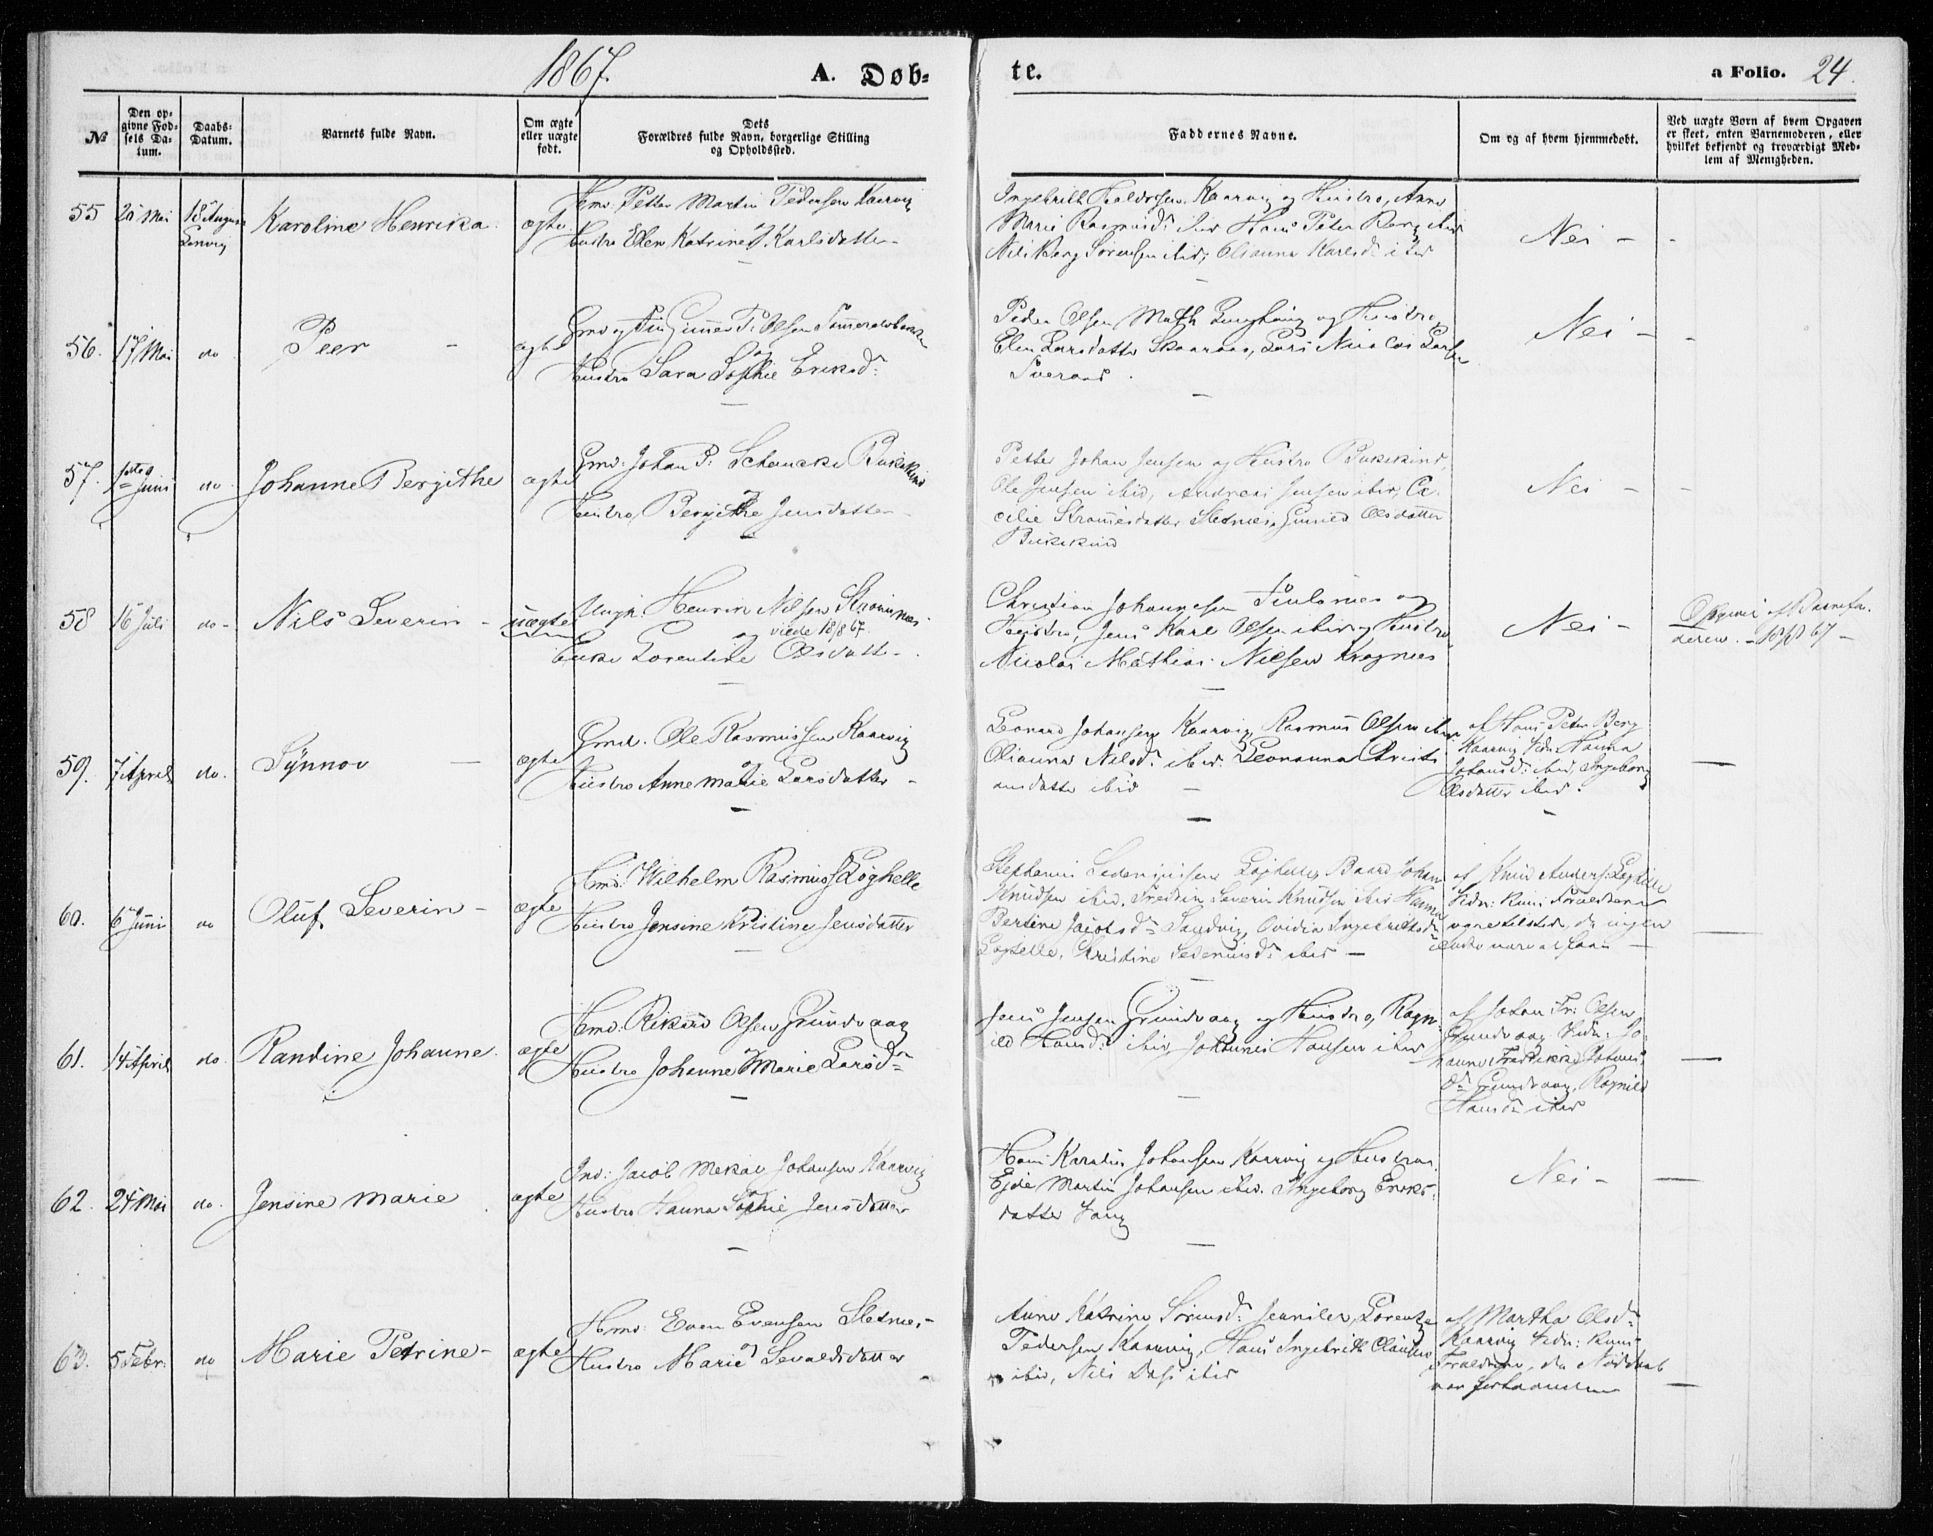 1867.
A. Døb=
te.
a Folio. 24.
№
Den op-
givne Fød-
sels Da-
tum.
Daabs-
Datum.
Barnets fulde Navn.
Om ægte
eller uægte
født.
Dets
Forældres fulde Navn, borgerlige Stilling
og Opholdssted.
Faddernes Navne.
Om og af hvem hjemmedøbt.
Ved uægte Børn af hvem Opgaven
er skeet, enten Barnemoderen, eller
hvilket bekjendt og troværdigt Med-
lem af Menigheden.
55 20 Mai 18 August Karoline Henrika ægte Petter Martin Pedersen Kaarvig
Lenvig Hustro Ellen Katrine Karlsdatter
Kaarvig og Hustro, Anne
Marie Rasmusdr ibid Hans Peter Berg ibid
Nils Berg Sørensen ibid, Olianna Karlsdr ibid
Nei -
56. 17 Mai do Peer - ægte Gmd og Olsen
Hustro Sara Sophie Eriksdr
Peder Olsen og Hustro,
Elen Larsdatter Lars Nicolas Larsen
Nei -
57. 1ste Juni do Johanne Bergithe ægte Gmd: Johan P: Bukskind
Hustro Bergithe Jensdatter
Petter Johan Jensen og Hustro Bukskind,
Ole Jensen ibid, Andreas Jensen ibid, Ce-
cilie Gunild Olsdatter
Bukskind
Nei -
58 16 Juli do - Nils Severin - uægte Ungk. Henrik Nilsen
og viede 18/8 67.
Enke Lorentine Olsdatter.
Christian Johannesen og
Hustro, Jens Karl Olsen ibid og Hustro
Nicolai Mathias Nilsen Krognæs
Nei -
Opgivet af Barnefa-
deren. - 18/8 67 -
59. 7 April do. Synnov - ægte Gmd. Ole Rasmussen Kaarvig
og
Hustro Anne Marie Larsdatter -
Leonard Johansen Kaarvig, Rasmus Olsen ibid
Olianna Nilsdr ibid Leonanna Christi-
ansdatter ibid -
af Hans Peter Berg
Kaarvig Fedr: Hanna
Johansdr ibid, Ingeborg
Olsdatter ibid.
60. 6 Juni do Oluf Severin - ægte Hmd: Wilhelm Rasmuss Løghelle
Hustro Jensine Kristine Jensdatter
Løghelle, Baard Johan
Knudsen ibid, Fredrik Severin Knudsen ibid Hanna
Bertine Jacobsdr Sandvig, Ovidia Ingebrigtsdr
Løghelle, Kristine ibid -
af Knud Anders Løghelle
Fedr: Kuns Forældrene
vare tilstede, da ingen
andre vare at faae -
61. 14 April do Randine Johanne. ægte Hmd: Rikard Olsen Grundvaag
Hustro Johanne Marie Larsdr
Jens Jensen Grundvaag og Hustro, Ragn-
ild Hansdr ibid, Johannes Hansen ibid
af Johan Fr: Olsen
Grundvaag Fedr: Jo-
hanna Fredrikke Johans-
dr Grundvaag, Ragnild
Hansdr ibid
62. 24 Mai do. Jensine Marie ægte Ind: Jacob Mekal Johansen Kaarvig
Hustro Hanna Sophie Jensdatter
Hans Johansen Kaarvig og Hustro,
Ejde Martin Johansen ibid. Ingeborg Eriks-
datter Vang
Nei -
63. 5 Febr: do Marie Petrine - ægte Hmd: Even Evensen Sletnæs -
Hustro Marie Sevaldsdatter
Anne Katrine Sørensdr Lorentz
Pedersen Kaarvig, Hans Ingebrikt
ibid, Nils ibid
af Martha Olsdr
Kaarvig Fedr: Kuns
Forældrene, da Nøddaab
var forhaanden